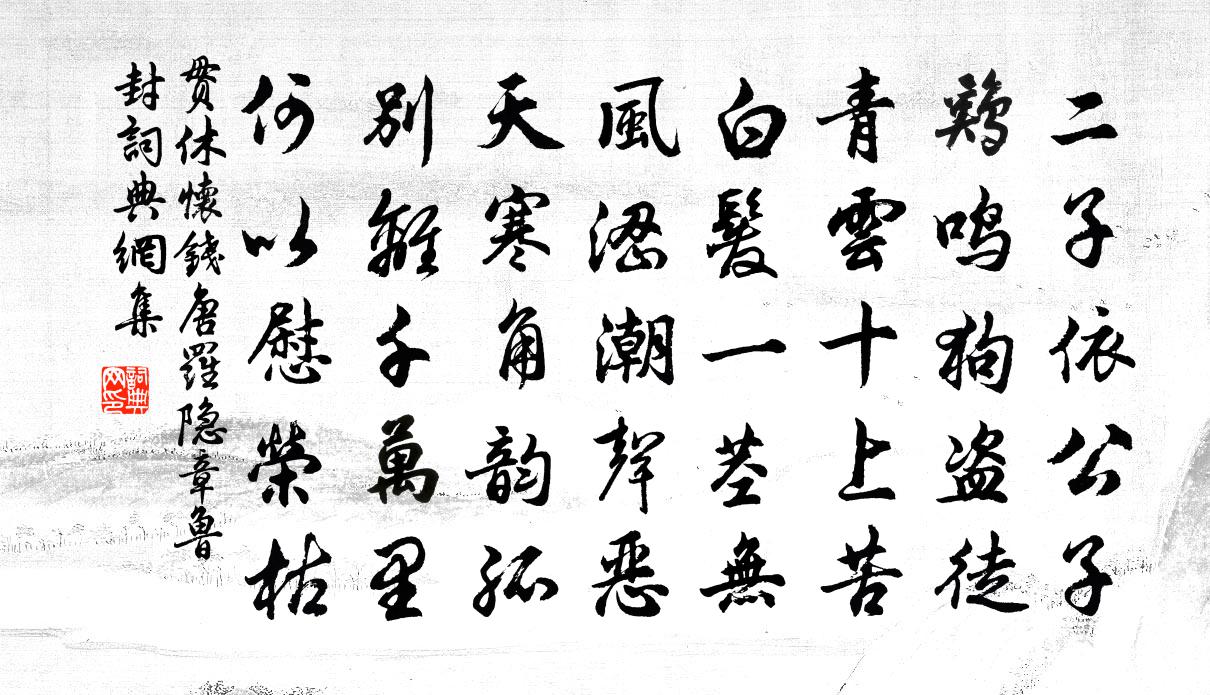 二子依公子
鷄鳴狗盗徒
青雲十上苦
白髮一茎無
風澀潮聲惡
天寒角韵孤
別離千萬里
何以慰榮枯
貫休懷錢唐羅隐章魯
封詞典網集
詞典
网印